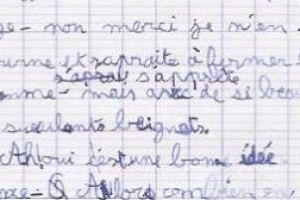 ge- non merci je n'en
urne et s'apraite à fermer
s'apprête
omme- mais avec de si beau
suculents beignets.
Ah! oui c'est une bonne idée
Alors combien en